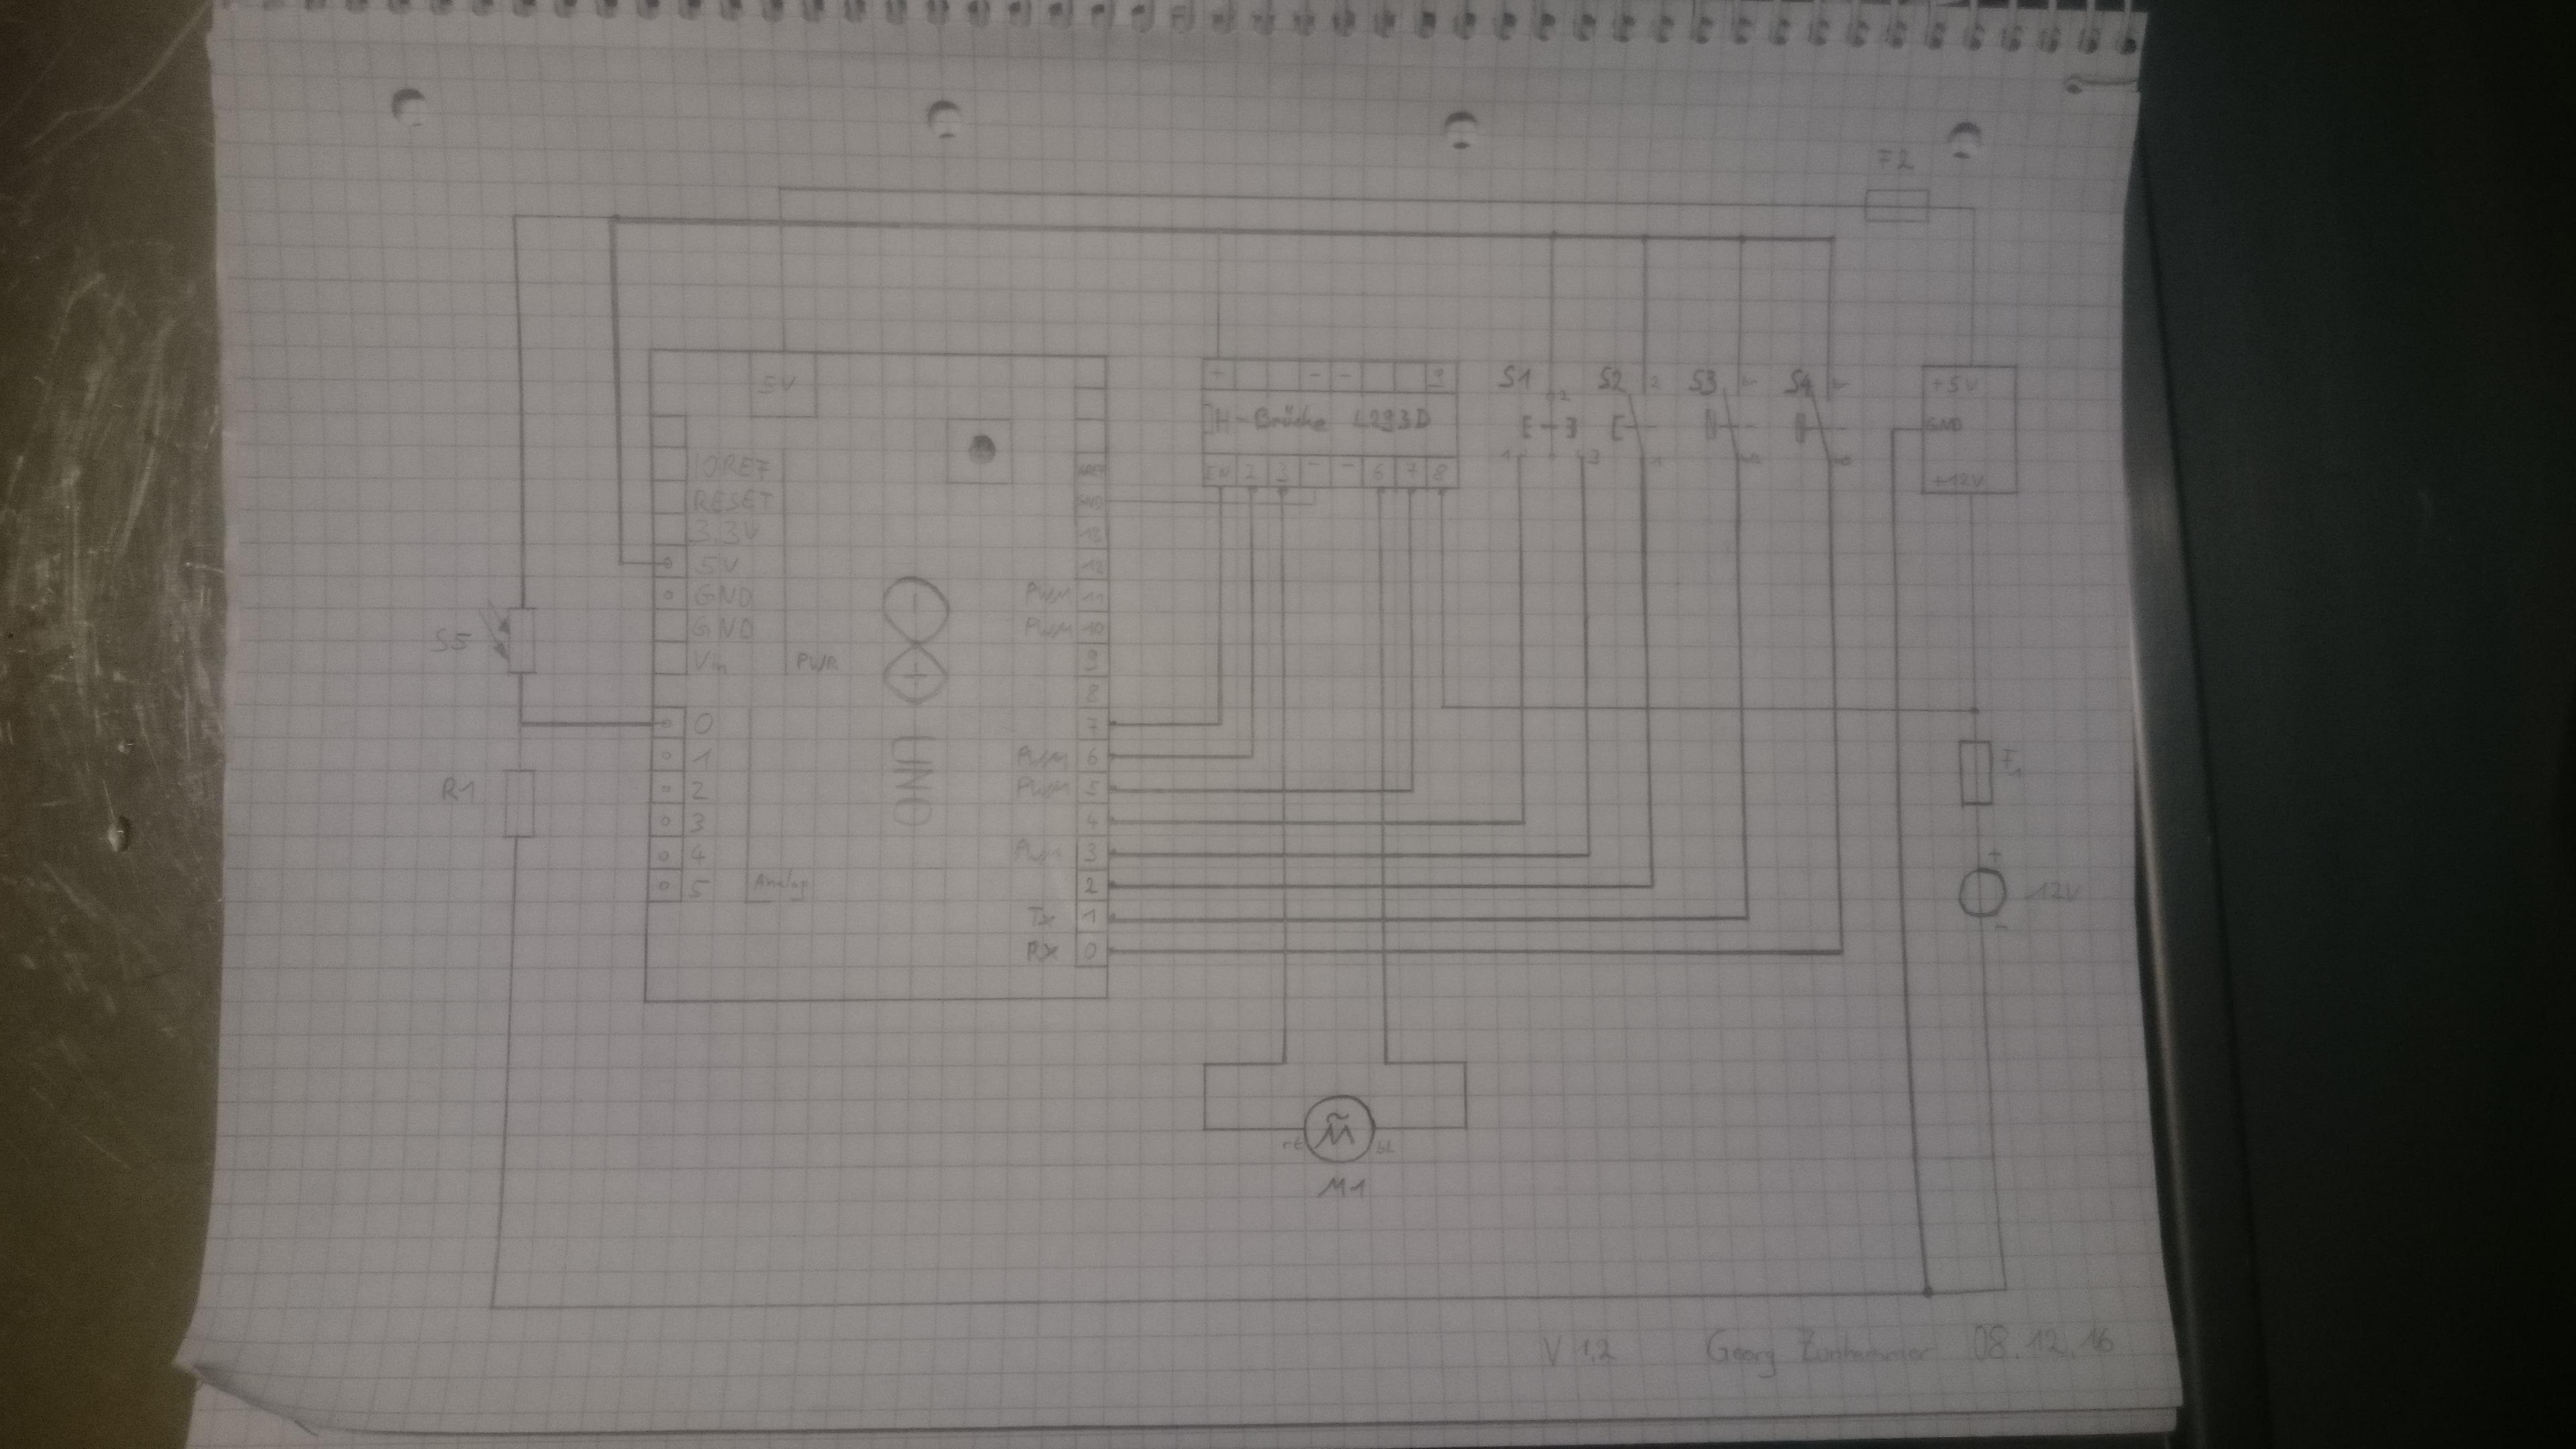 F2
5V
IOREF
RESET
3.3V
5V
GND
GND
Vin
PWR
0
1
2
3
4
5
Analog
UNO
AREF
GND
13
12
PWM 11
PWM 10
9
8
7
PWM 6
PWM 5
4
PWM 3
2
TX 1
RX 0
+ - - 9
H-Brücke L293D
EN 2 3 - - 6 7 8
S1
2
1 3
S2
2
1
S3
S4
+5V
GND
+12V
S5
R1
F1
+
12V
-
M
rt
bl
M1
V 1.2 Georg Zunhammer 08.12.16